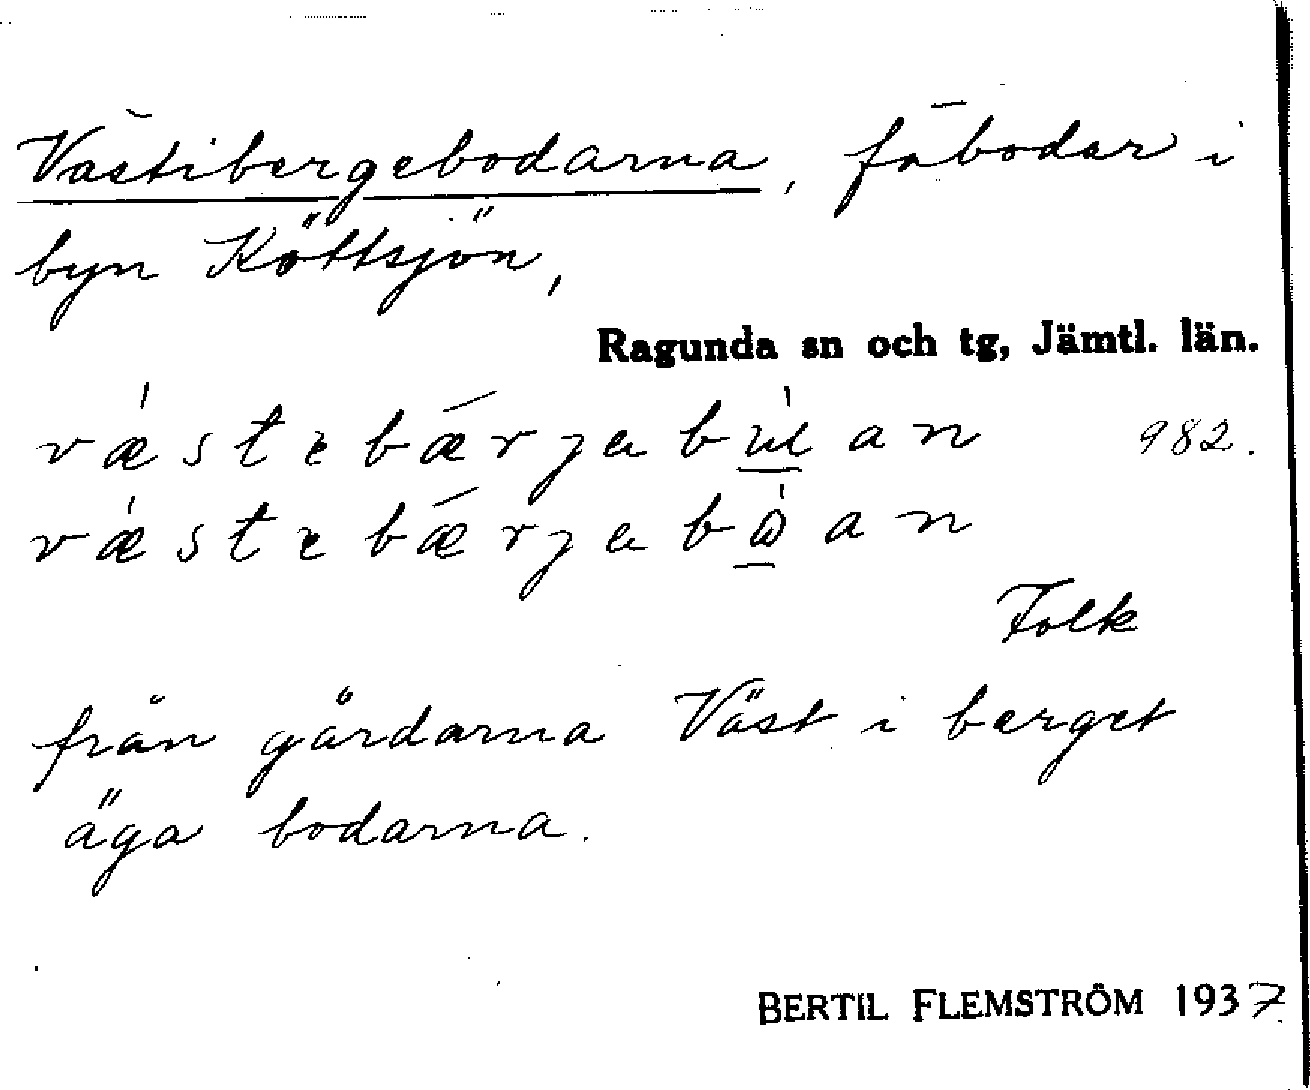 Västibergebodarna, fäbodar i
byn Köttsjön,
Ragunda sn och tg, Jämtl. län.
982.
Folk
från gårdarna Väst i berget
äga bodarna.
BERTIL FLEMSTRÖM 1937